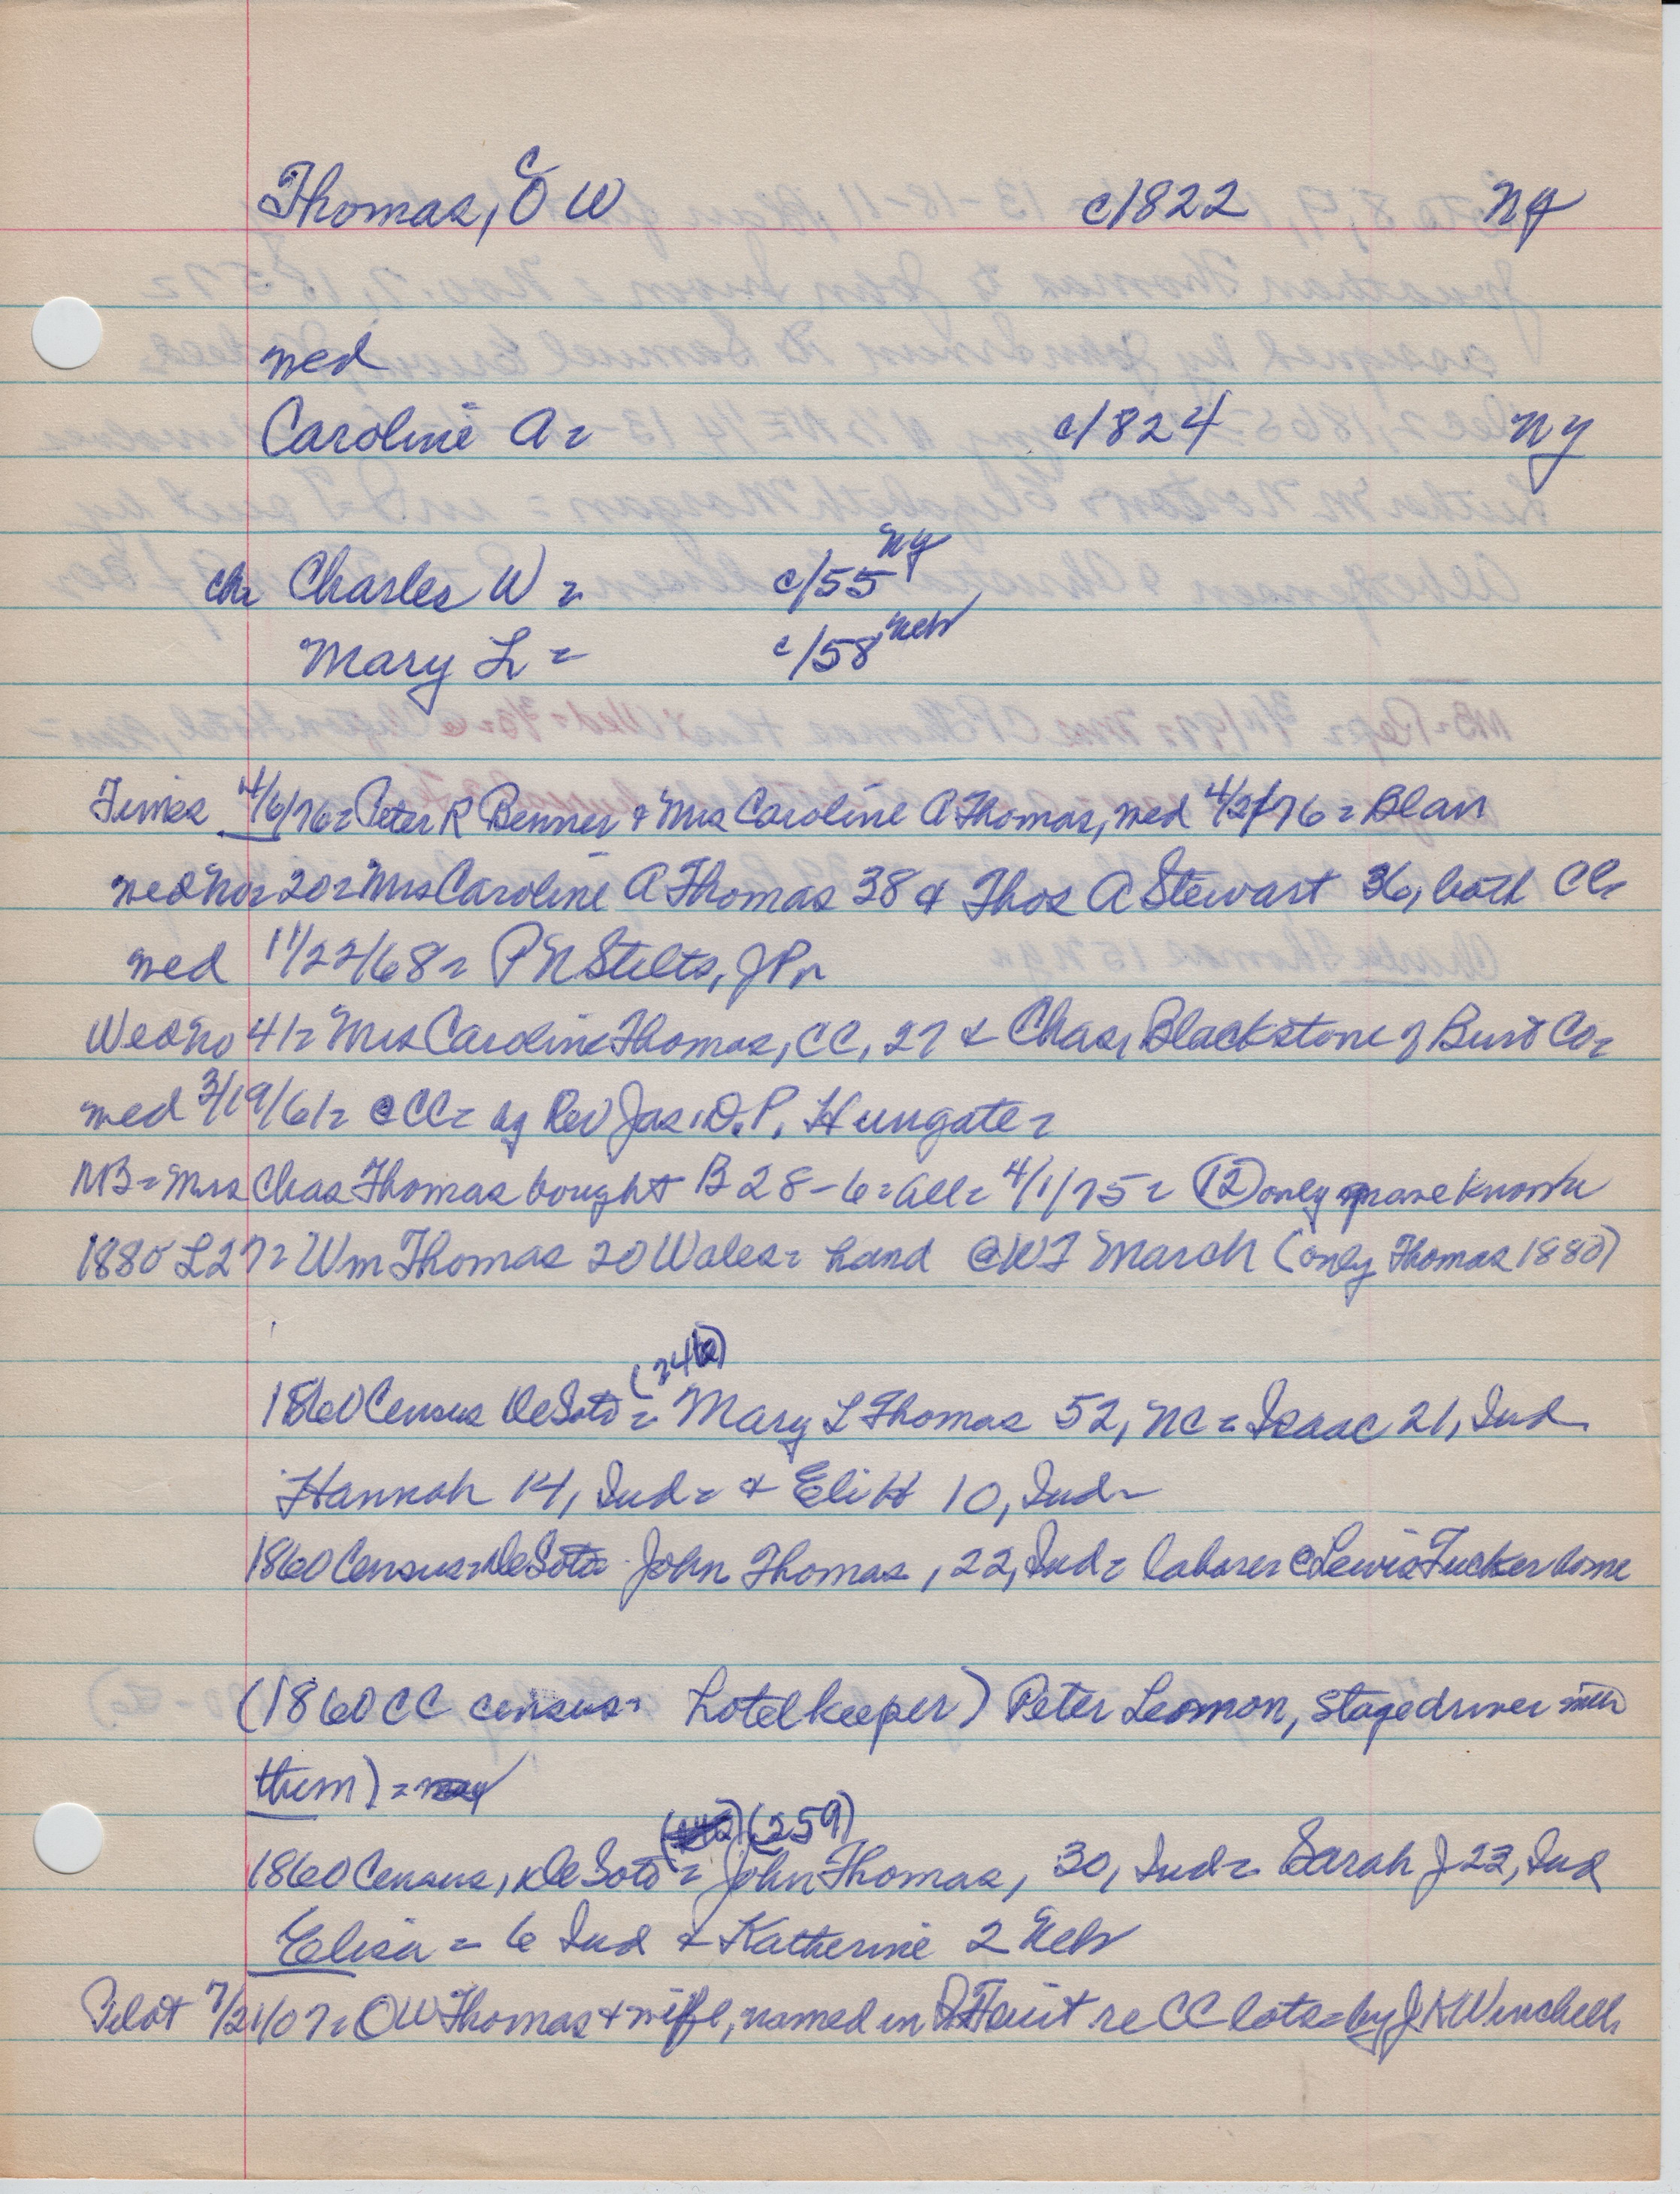 Thomas, O W c1822 NY
C
med
Caroline A= c/1824 NY
ch= Charles W = c/55 NY
Mary L = c/58 Neb
Times 4/6/76= Peter R Benner & Mrs Caroline A Thomas, med 4/2/76= Blair
Wed No= 20= Mrs Caroline A Thomas 38 & Thos A Stewart 36, both CC=
med 11/22/68= P N Stilts, JP=
Wed No 41= Mrs Caroline Thomas, CC, 27 & Chas, Blackstone of Burt Co=
med 3/19/61= @ CC= by Rev Jas. D.P. Hungate=
MB= Mrs Chas Thomas bought B 28-6= all= 4/1/75= (12) only grave known
1880 L27= Wm Thomas 20 Wales= hand @ W F March (only Thomas 1880)
(246)
1860 Census DeSoto= Mary L Thomas 52, NC= Isaac 21, Ind
Hannah 14, Ind= & Eli H 10, Ind=
1860 Census= DeSoto John Thomas, 22, Ind= laborer @ Lewis Tucker home
(1860 CC census= hotelkeeper) Peter Leomon, stagedriver with
them) =
(259)
1860 Census, DeSoto = John Thomas, 30, Ind= Sarah J 23, Ind
Elisa = 6 Ind & Katherine 2 Neb
Pilot 7/21/07= O W Thomas & wife, named in suit re CC lots= by J K Winchell,